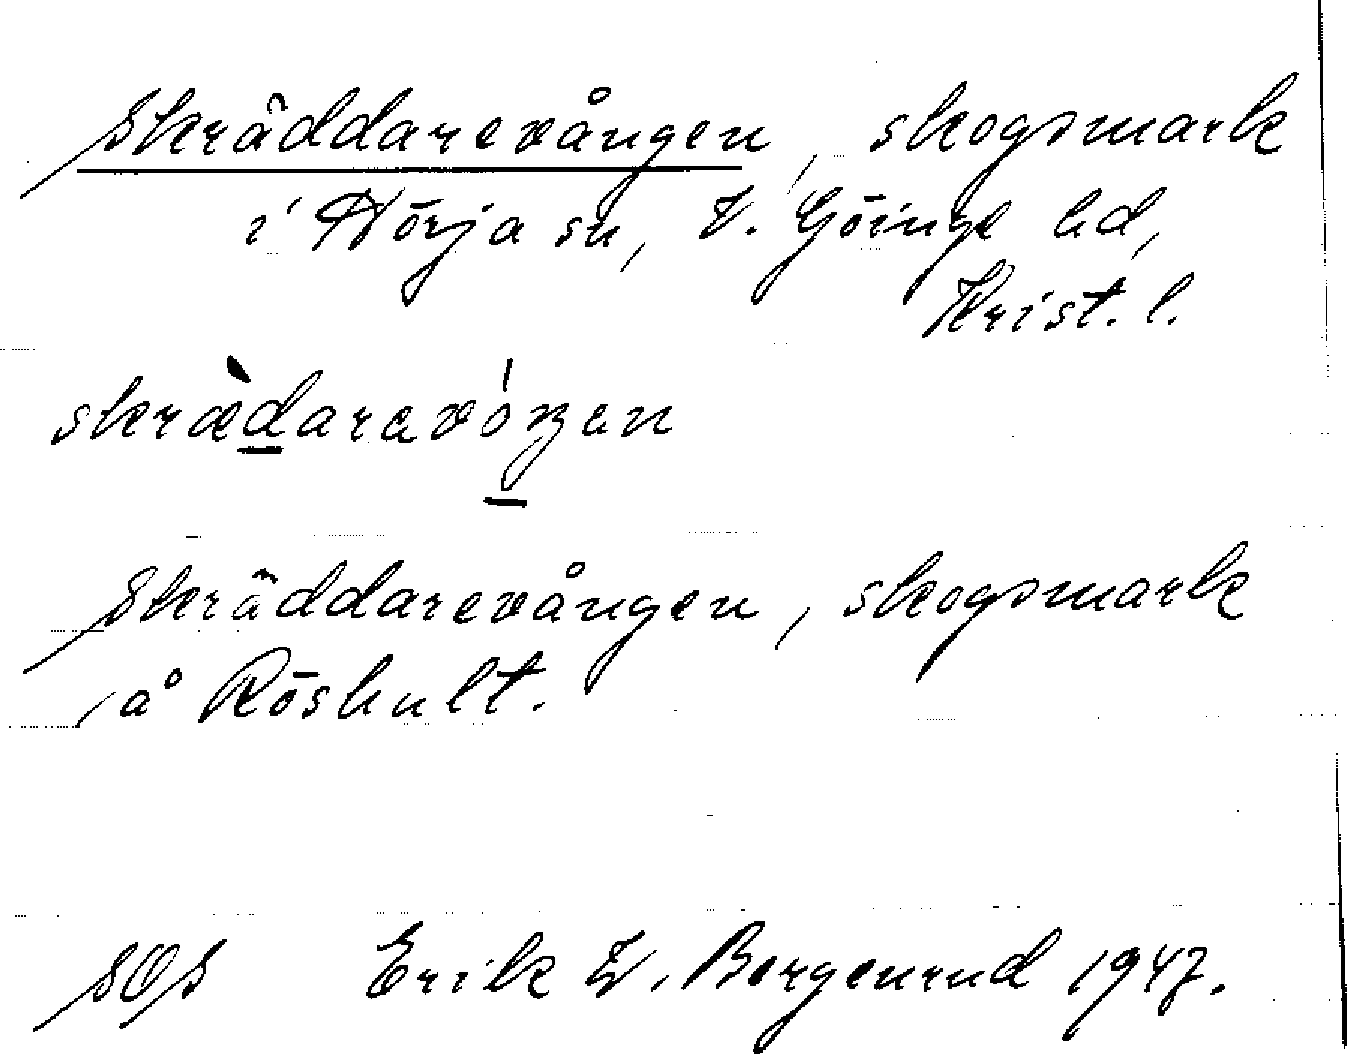 Skräddarevången, skogsmark
i Nörja sn, V. Göinge hd,
Krist. l.
skrædaravóŋen
Skräddarevången, skogsmark
å Röshult.
SOS Erik W. Borgenrud 1947.